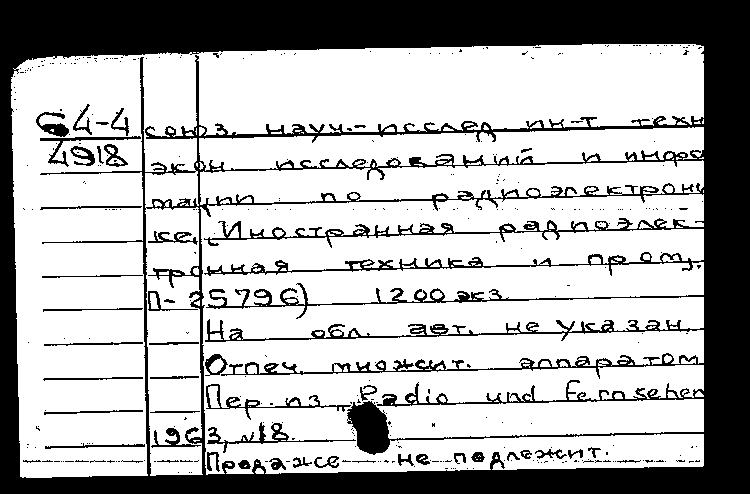 64-4
4918
союз. науч.-исслед. ин-т техн
экон исследований и инфо
мации по радиоэлектрони
ке. Иностранная радиоэлек-
тронная техника и пром,.
П-25796) 1200 экз.
На обл. авт. не указан.
Отпеч. множит. аппаратом
Пер. из „Radio und Fernsehen
1963, №18.
Продаже не подлежит.